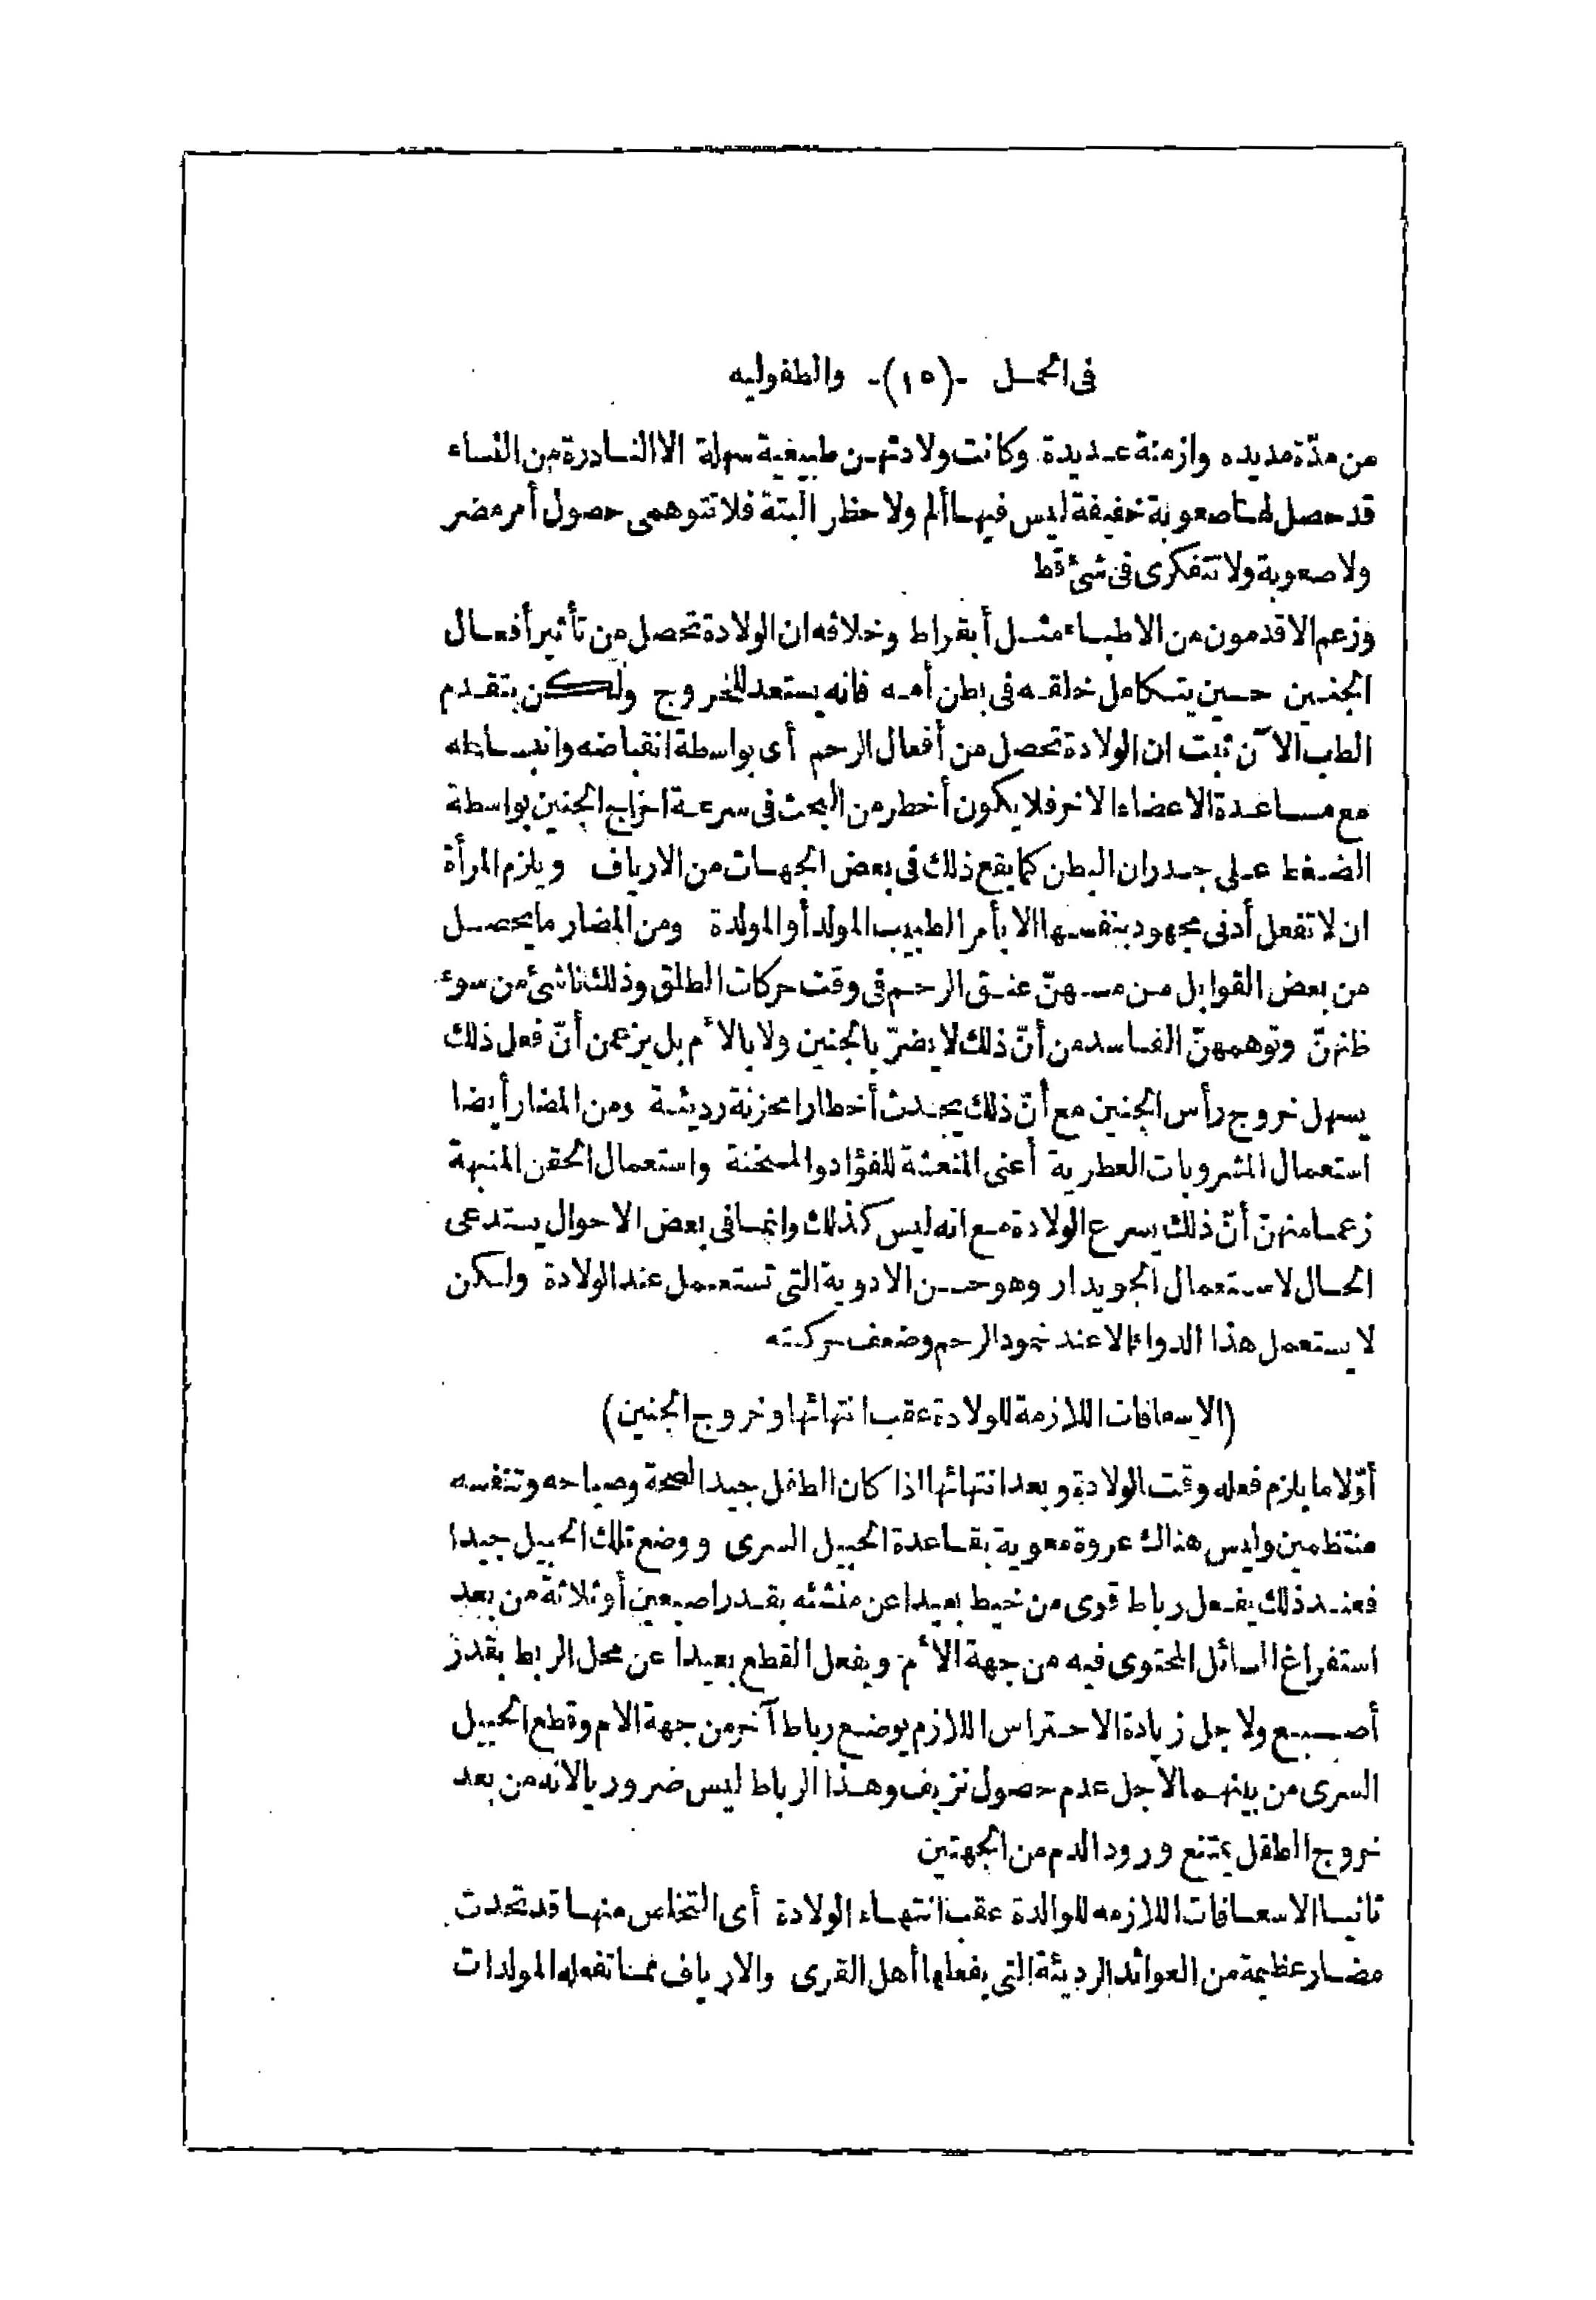 فى الحمل -(١٥)- والطفوليه
من مدّة مديده وازمنة عديدة وكانت ولادتهن طبيعية سهلة الا النادرة من النساء
قد حصل لها صعوبة خفيفة ليس فيها ألم ولا خطر البتة فلا تتوهمى حصول أمر مضر
ولا صعوبة ولا تتفكرى فى شئ قط
وزعم الاقدمون من الاطباء مثل أبقراط وخلافه ان الولادة تحصل من تأثير أفعال
الجنين حين يتكامل خلقه فى بطن أمه فانه يستعد للخروج ولكن بتقدم
الطب الآن ثبت ان الولادة تحصل من أفعال الرحم أى بواسطة انقباضه وانبساطه
مع مساعدة الاعضاء الاخر فلا يكون أخطر من البحث فى سرعة اخراج الجنين بواسطة
الضغط على جدران البطن كما يقع ذلك فى بعض الجهات من الارياف ويلزم المرأة
ان لا تفعل أدنى مجهود بنفسها الا بأمر الطبيب المولد أو المولدة ومن المضار ما يحصل
من بعض القوابل من مسهنّ عنق الرحم فى وقت حركات الطلق وذلك ناشئ من سوء
ظنهنّ وتوهمهنّ الفاسد من أنّ ذلك لا يضرّ بالجنين ولا بالأم بل يزعمن أنّ فعل ذلك
يسهل خروج رأس الجنين مع أنّ ذلك يحدث أخطارا محزنة رديئة ومن المضار أيضا
استعمال المشروبات العطرية أعنى المنعشة للفؤاد والمسخنة واستعمال الحقن المنبهة
زعما منهنّ أنّ ذلك يسرع الولادة مع انه ليس كذلك وانما فى بعض الاحوال يستدعى
الحال لاستعمال الجويدار وهو حسن الادوية التى تستعمل عند الولادة ولكن
لا يستعمل هذا الدواء الا عند خمود الرحم وضعف حركته
(الاسعافات اللازمة للولادة عقب انتهائها وخروج الجنين)
أوّلا ما يلزم فعله وقت الولادة وبعد انتهائها اذا كان الطفل جيد الصحة وصياحه وتنفسه
منتظمين وليس هناك عروة معوية بقاعدة الحبيل السرى ووضع تلك الحبيل جيدا
فعند ذلك يفعل رباط قوى من خيط بعيدا عن منشئه بقدر اصبعين أو ثلاثة من بعد
استفراغ السائل المحتوى فيه من جهة الأم ويفعل القطع بعيدا عن محل الربط بقدر
أصبع ولاجل زيادة الاحتراس اللازم يوضع رباط آخر من جهة الام وقطع الحبيل
السرى من بينهما لاجل عدم حصول نزيف وهذا الرباط ليس ضروريا لانه من بعد
خروج الطفل يمتنع ورود الدم من الجهتين
ثانيا الاسعافات اللازمه للوالدة عقب انتهاء الولادة أى التخلص منها قد تحدث
مضار عظيمة من العوائد الرديئة التى يفعلها أهل القرى والارياف مما تفعله المولدات